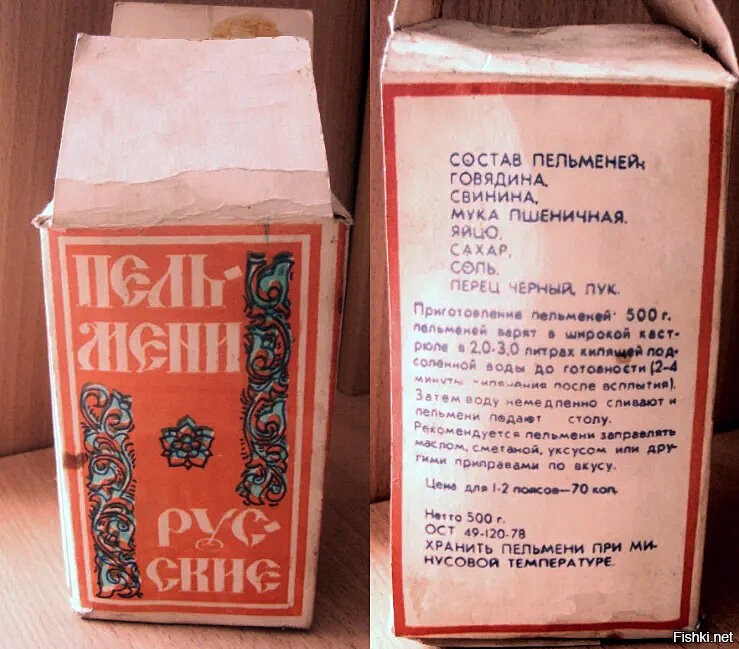 ПЕЛЬ-
МЕНИ
РУС-
СКИЕ
СОСТАВ ПЕЛЬМЕНЕЙ:
ГОВЯДИНА,
СВИНИНА,
МУКА ПШЕНИЧНАЯ.
ЯЙЦО,
САХАР,
СОЛЬ.
ПЕРЕЦ ЧЕРНЫЙ, ЛУК.
Приготовление пельменей: 500 г.
пельменей варят в широкой каст-
рюле в 2,0-3,0 литрах кипящей под-
соленной воды до готовности (2-4
минуты кипячения после всплытия).
Затем воду немедленно сливают и
пельмени подают столу.
Рекомендуется пельмени заправлять
маслом, сметаной, уксусом или дру-
гими приправами по вкусу.
Цена для 1-2 поясов—70 коп.
Нетто 500 г.
ОСТ 49-120-78
ХРАНИТЬ ПЕЛЬМЕНИ ПРИ МИ-
НУСОВОЙ ТЕМПЕРАТУРЕ.
Fishki.net